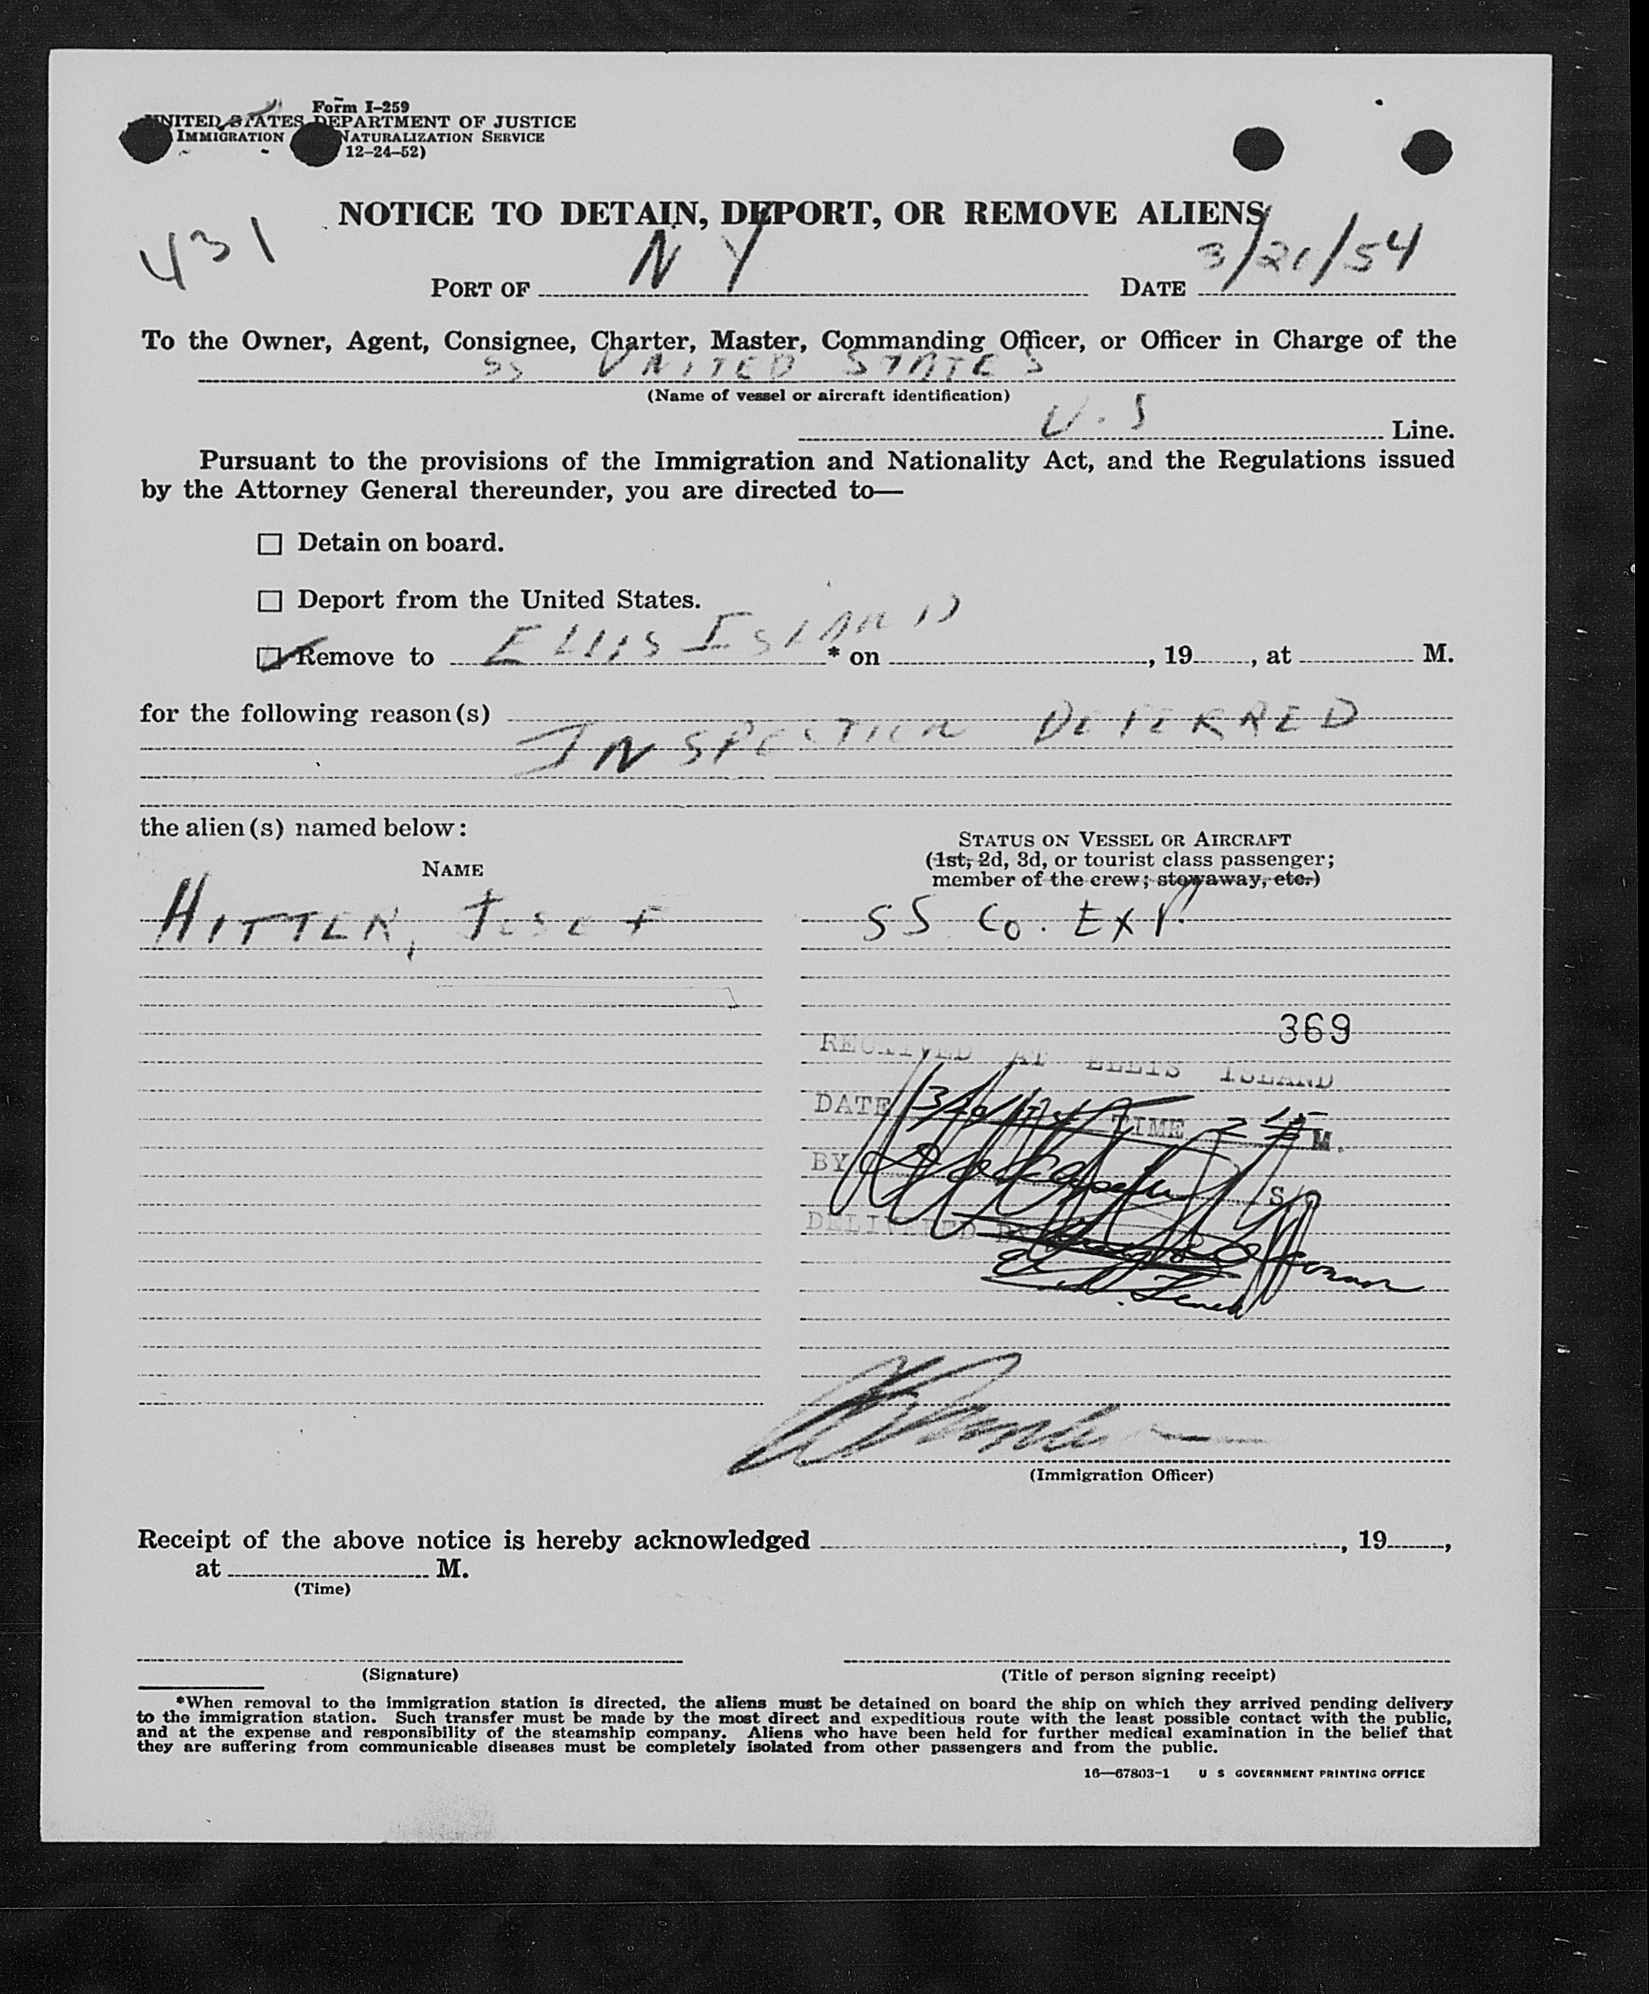 Form I-259
UNITED STATES DEPARTMENT OF JUSTICE
IMMIGRATION NATURALIZATION SERVICE
12-24-52)
NOTICE TO DETAIN, DEPORT, OR REMOVE ALIENS
431
PORT OF N Y DATE 3/21/54
To the Owner, Agent, Consignee, Charter, Master, Commanding Officer, or Officer in Charge of the
SS UNITED STATES
(Name of vessel or aircraft identification)
U.S Line.
Pursuant to the provisions of the Immigration and Nationality Act, and the Regulations issued
by the Attorney General thereunder, you are directed to—
☐ Detain on board.
☐ Deport from the United States.
☑ Remove to ELLIS ISLAND * on , 19 , at M.
for the following reason(s)
INSPECTION DEFERRED
the alien(s) named below:
NAME
STATUS ON VESSEL OR AIRCRAFT
(1st, 2d, 3d, or tourist class passenger;
member of the crew; stowaway, etc.)
HITTLER, JOSEF SS Co. EXP.
369
RECEIVED AT ELLIS ISLAND
DATE TIME 2 15 M.
BY
DELIVERED BY
(Immigration Officer)
Receipt of the above notice is hereby acknowledged , 19 ,
at M.
(Time)
(Signature) (Title of person signing receipt)
*When removal to the immigration station is directed, the aliens must be detained on board the ship on which they arrived pending delivery
to the immigration station. Such transfer must be made by the most direct and expeditious route with the least possible contact with the public,
and at the expense and responsibility of the steamship company. Aliens who have been held for further medical examination in the belief that
they are suffering from communicable diseases must be completely isolated from other passengers and from the public.
16—67803-1 U S GOVERNMENT PRINTING OFFICE